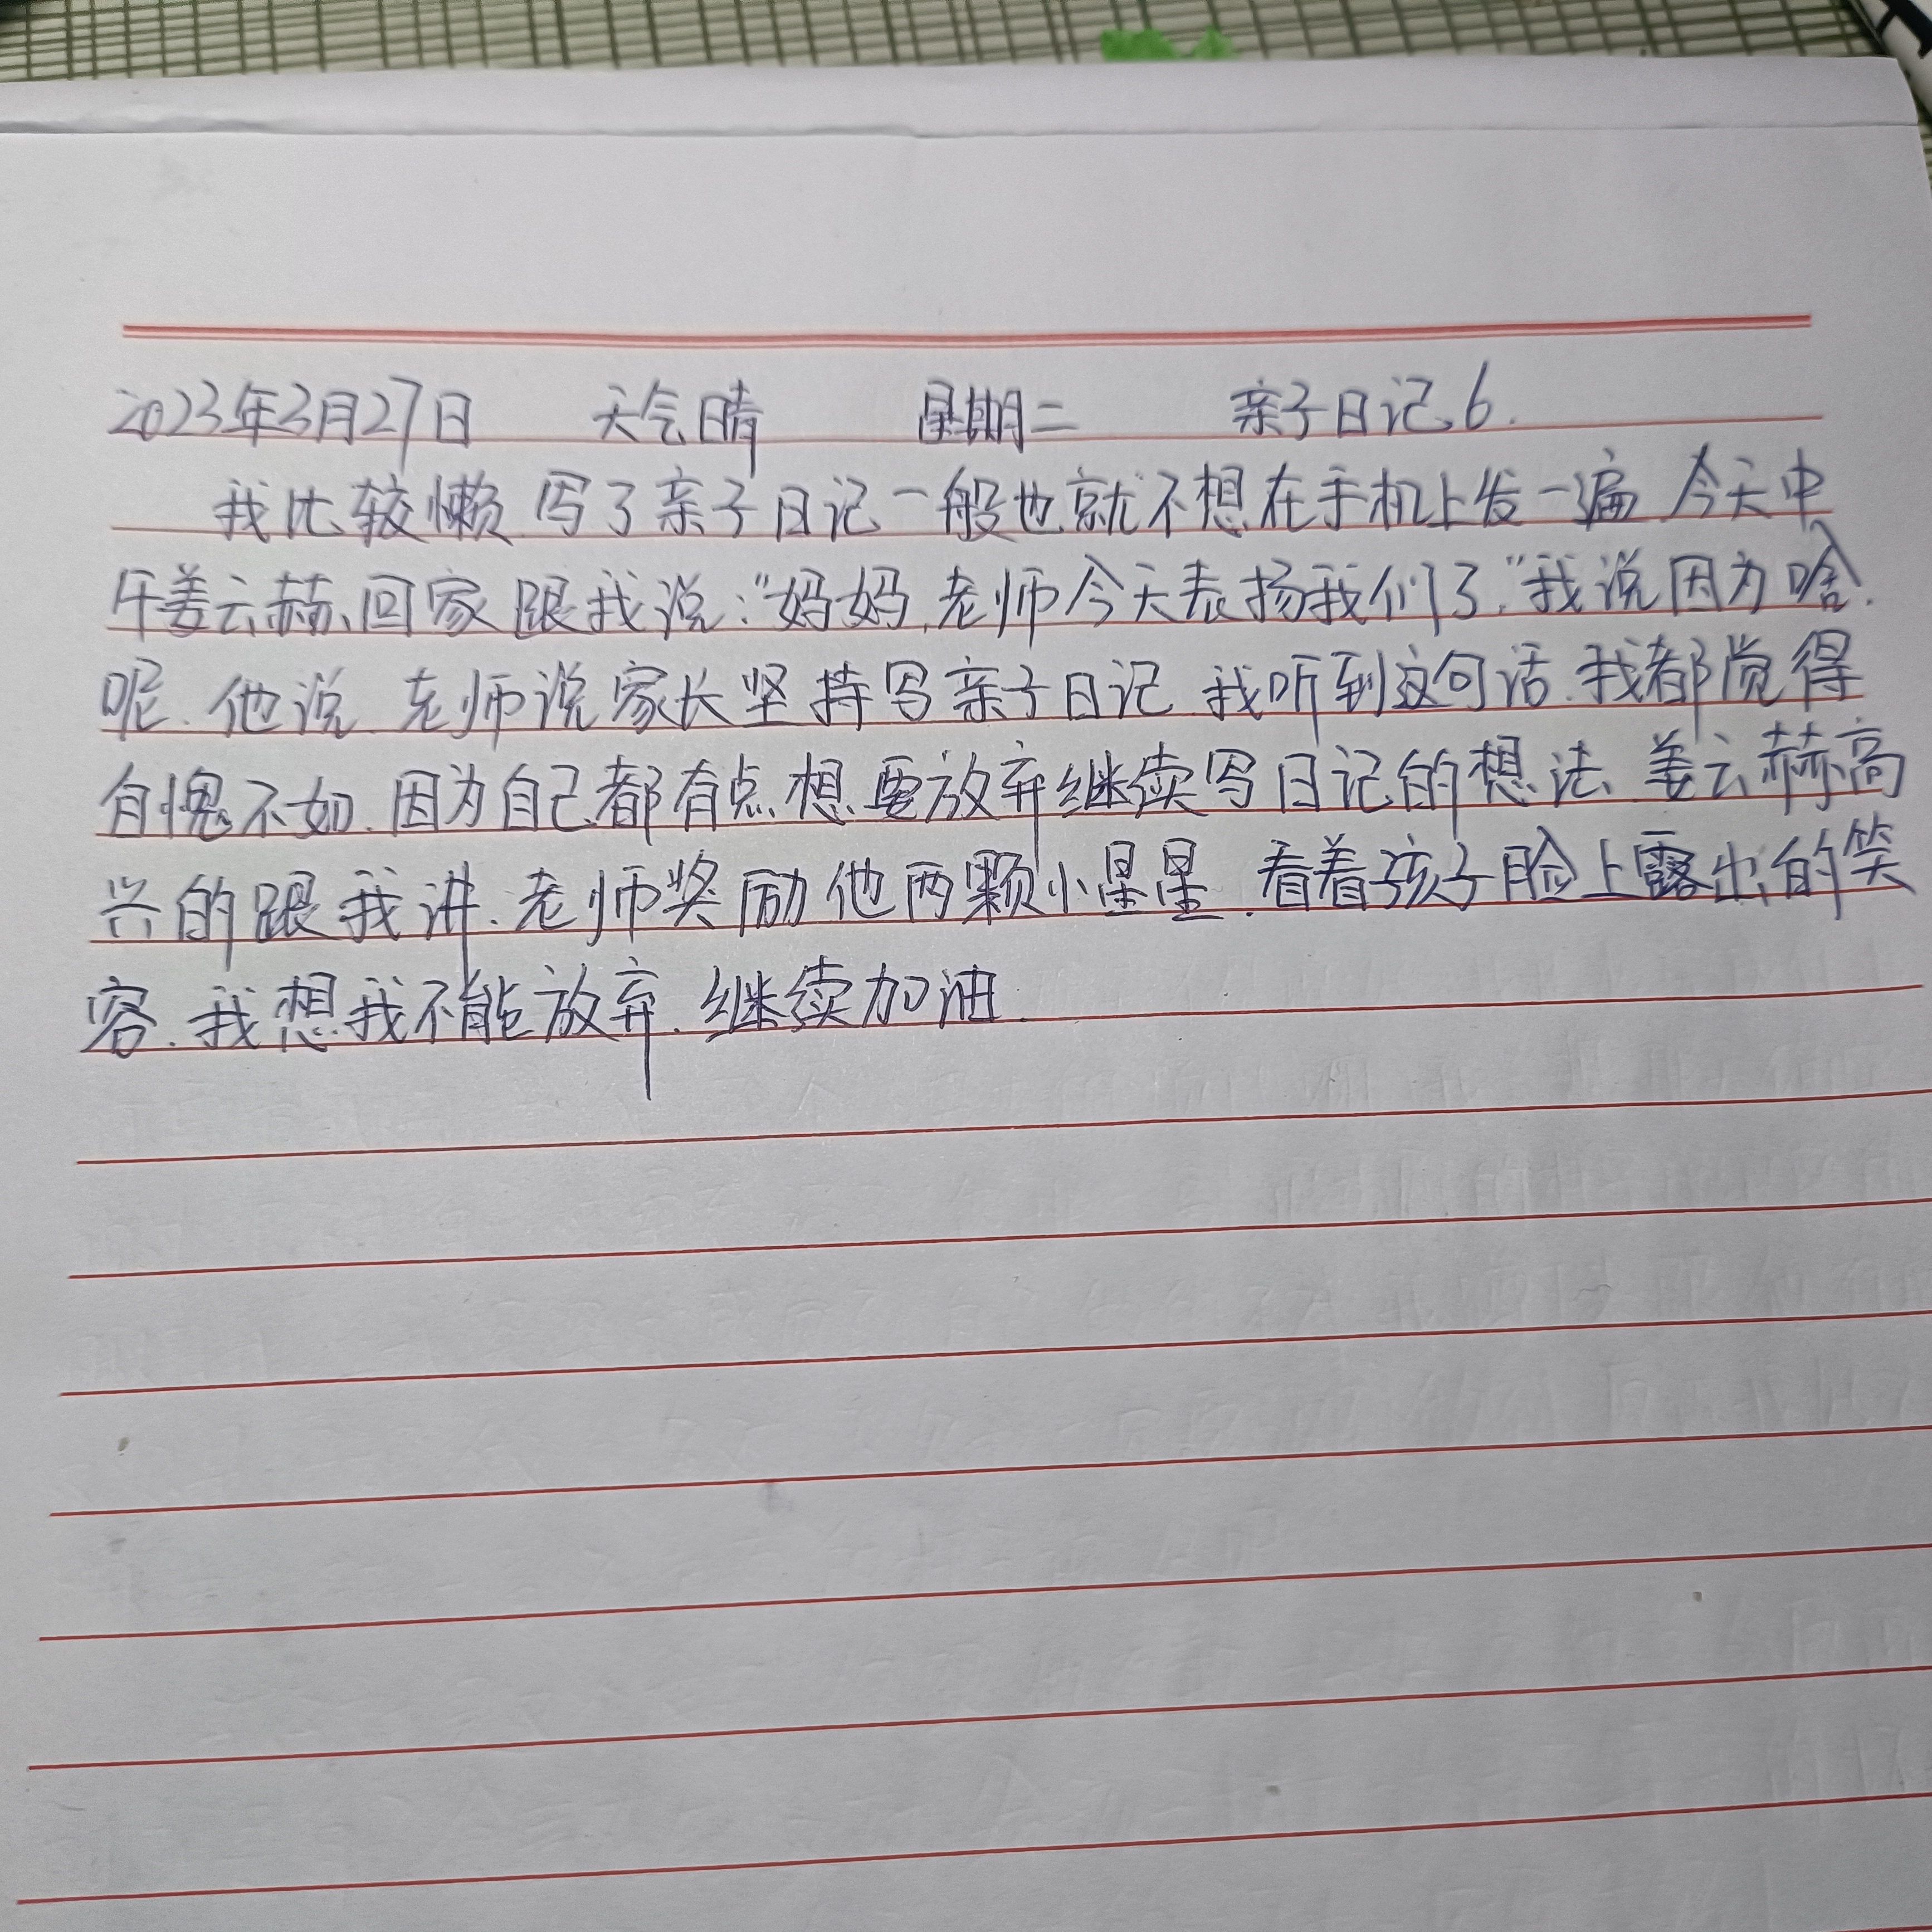 2023年3月27日 天气晴 星期二 亲子日记6.
我比较懒.写了亲子日记一般也就不想在手机上发一遍 今天中
午姜云赫回家跟我说:"妈妈,老师今天表扬我们了."我说因为啥.
呢.他说.老师说家长坚持写亲子日记.我听到这句话.我都觉得
自愧不如.因为自己都有点想要放弃继续写日记的想法.姜云赫高
兴的跟我讲.老师奖励他两颗小星星.看着孩子脸上露出的笑
容.我想我不能放弃.继续加油.